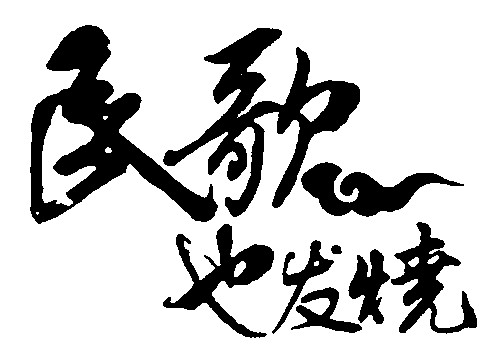 民歌
也发烧